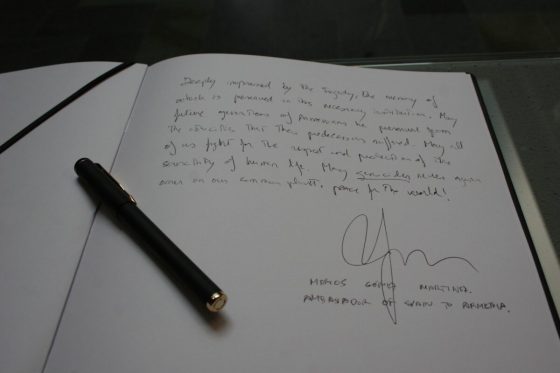 Deeply impressed by the tragedy, the memory of
which is preserved in this necessary institution. May
future generations of Armenians be preserved from
the atrocities that their predecessors suffered. May all
of us fight for the respect and protection of the
sanctity of human life. May genocides never again
occur on our common planet, peace for the world!
MARCOS GÓMEZ MARTÍNEZ.
AMBASSADOR OF SPAIN TO ARMENIA.